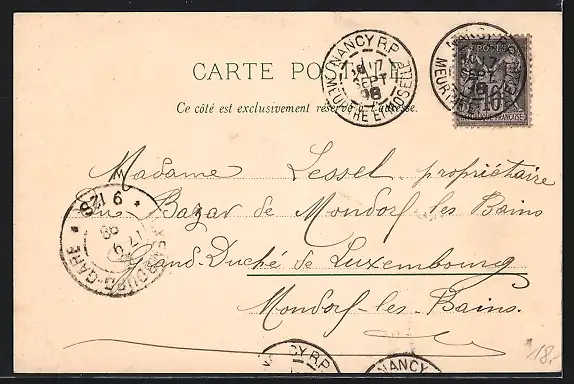 CARTE POSTALE
Ce côté est exclusivement réservé à l'adresse.
NANCY R.P.
17
SEPT
98
MEURTHE ET MOSELLE
NANCY R.P.
17
SEPT
MEURTHE ET MOSELLE
POSTES
Madame Lessel propriétaire
du Bazar de Mondorf les Bains
Grand-Duché de Luxembourg
Mondorf-les-Bains.
LUXEMBOURG-GARE
17 9
98
9 12S
NANCY R.P.
NANCY
18.-